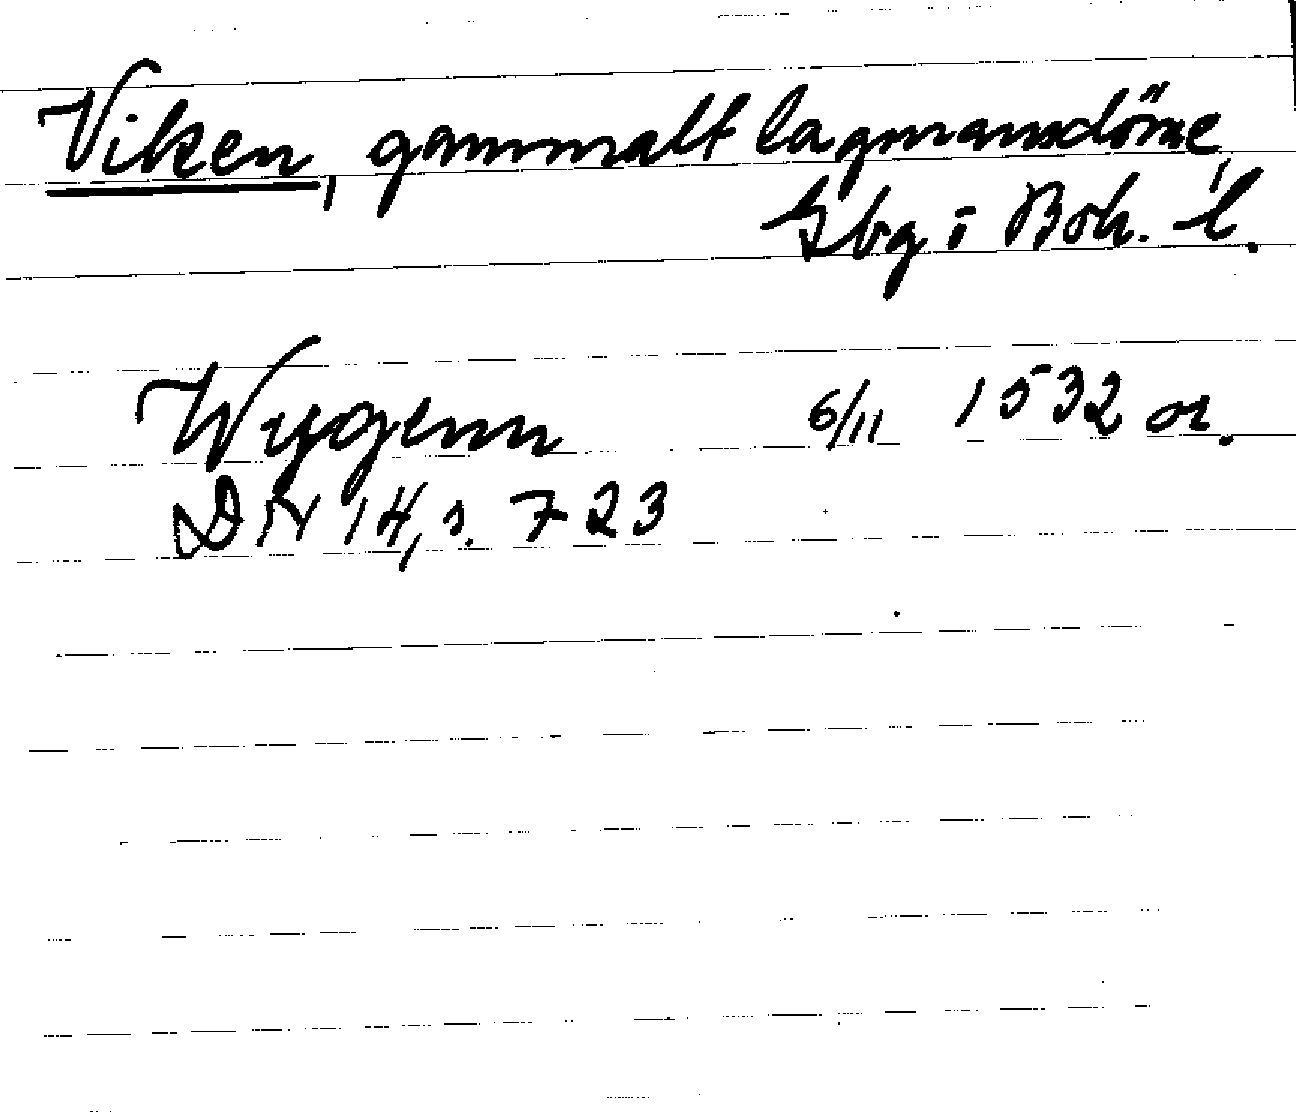 Viken, gammalt lagmansdöme,
Gbg o Boh. l.
Wygenn 6/11 1532 or.
DN 14, s. 723